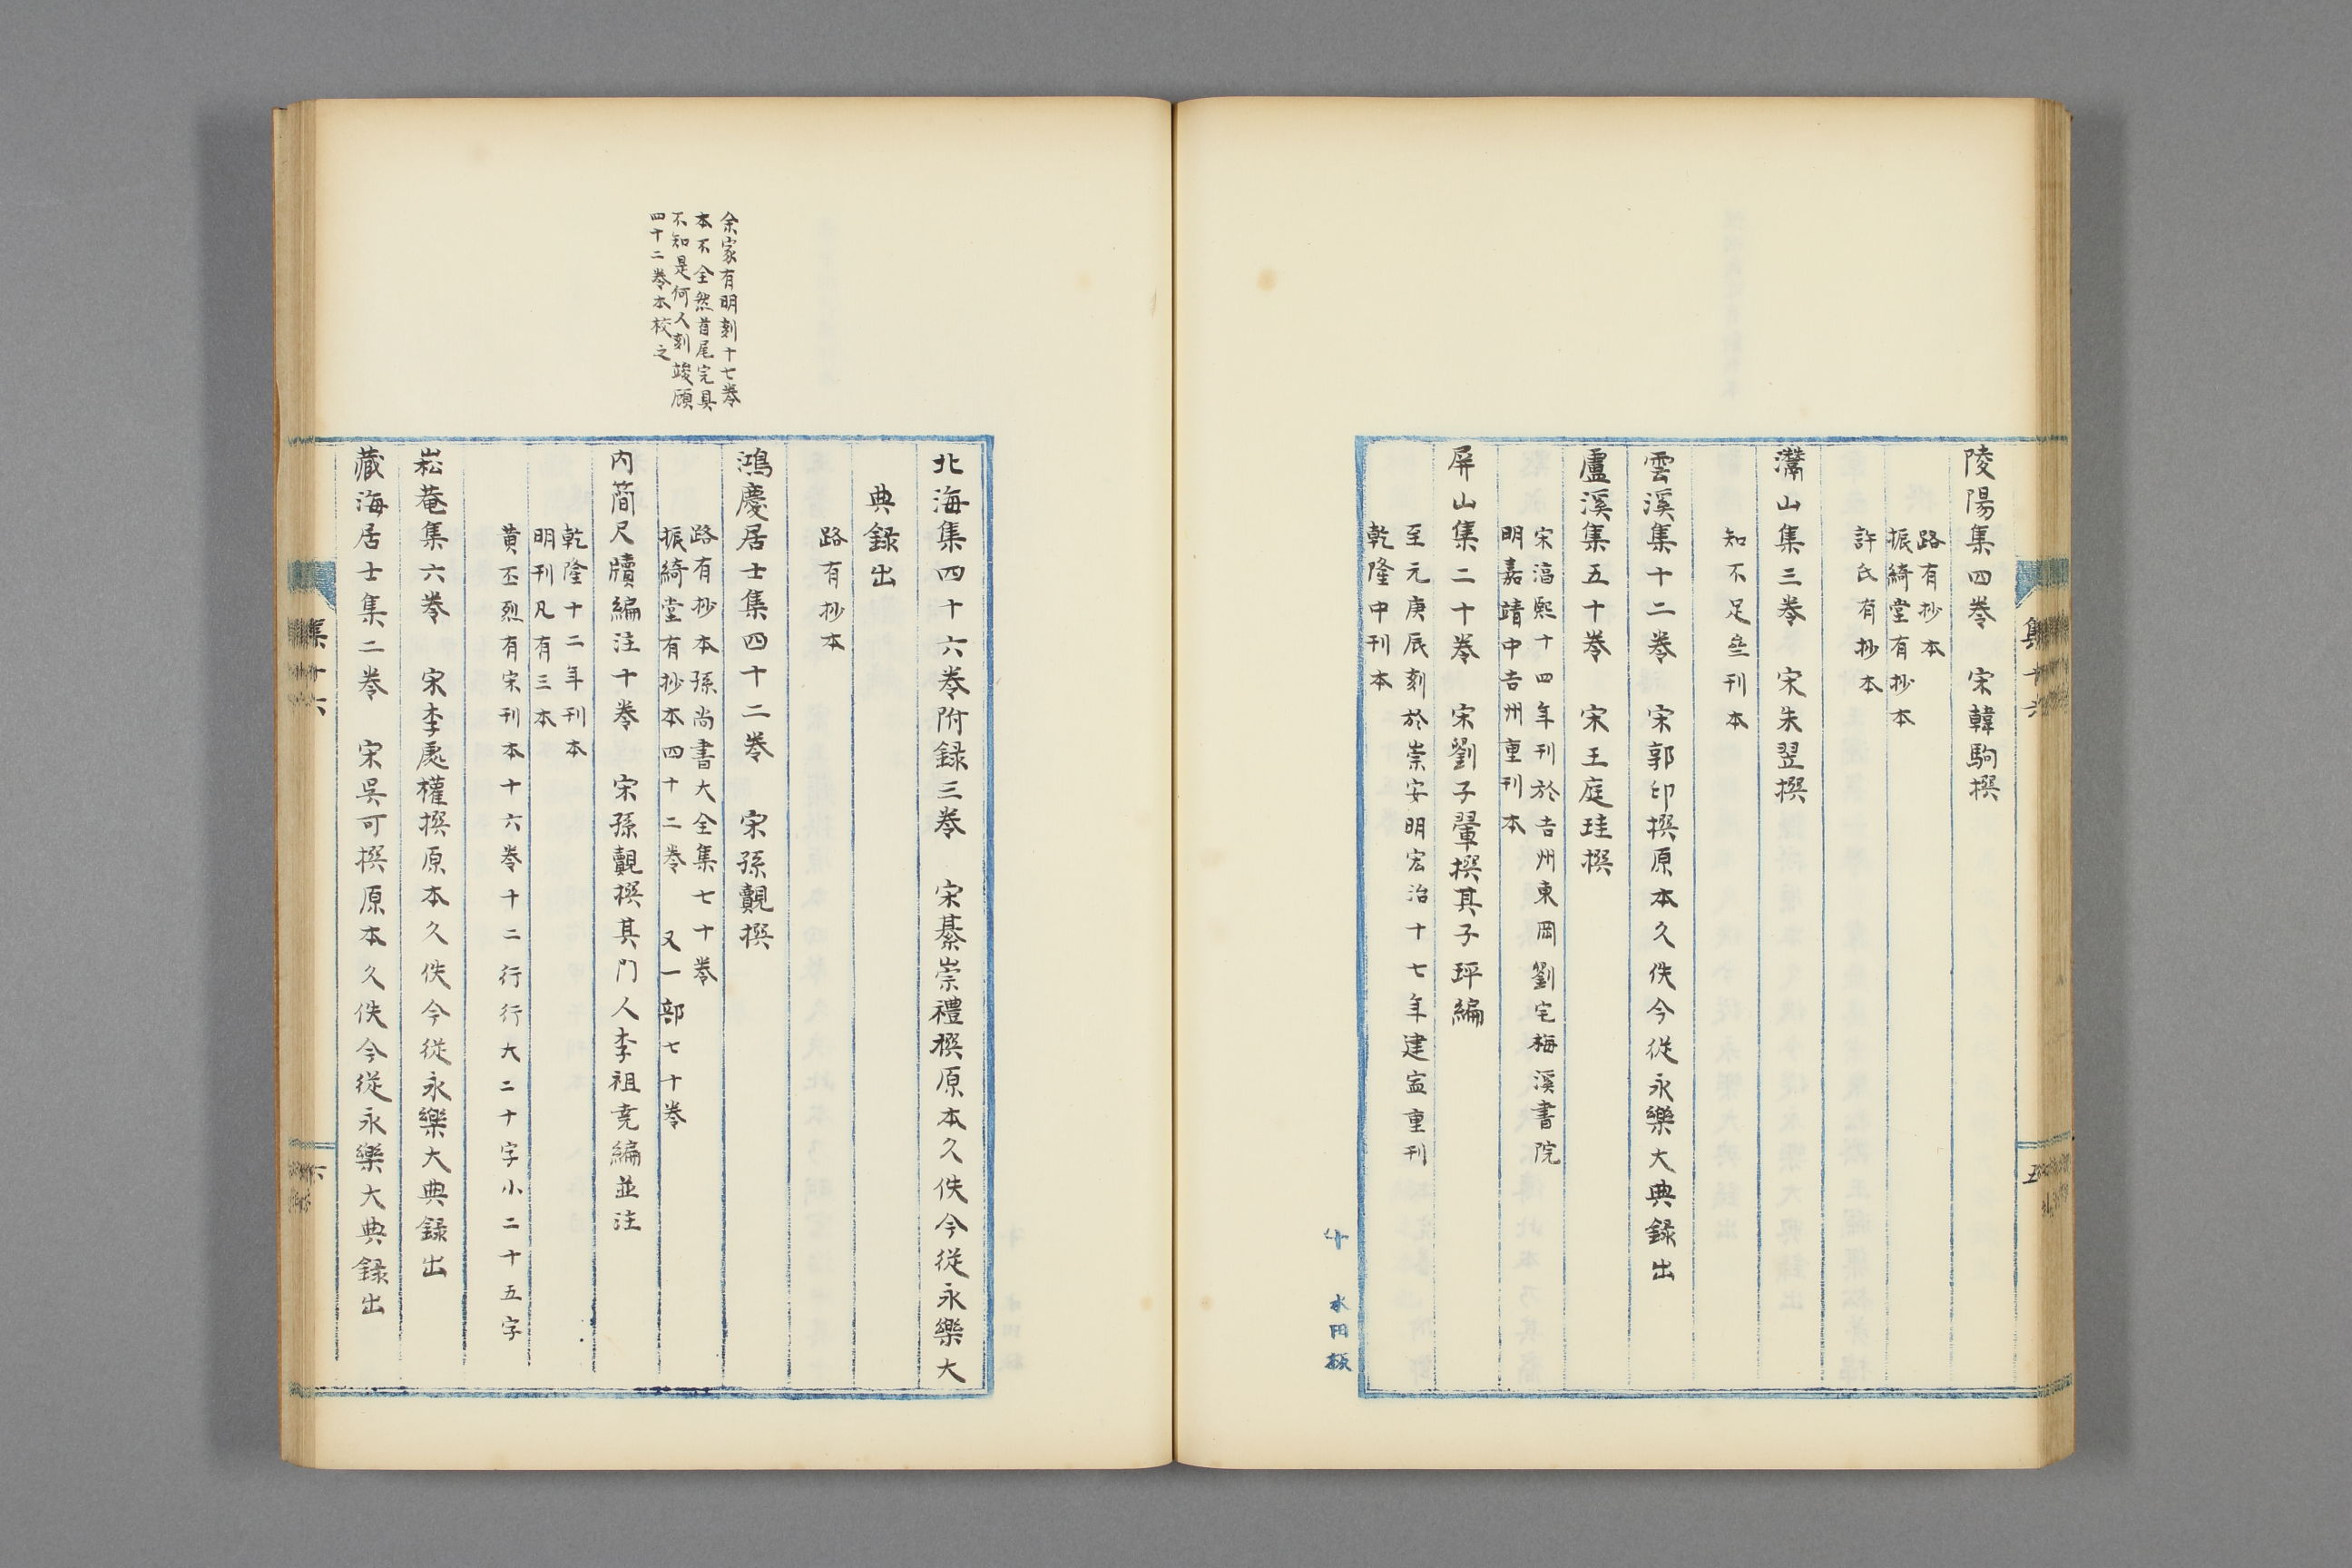 陵陽集四卷　宋韓駒撰
路有抄本
振綺堂有抄本
許氏有抄本
灊山集三卷　宋朱翌撰
知不足齋刊本
雲溪集十二卷　宋郭印撰原本久佚今從永樂大典録出
盧溪集五十卷　宋王庭珪撰
宋湻熙十四年刊於吉州東岡劉宅梅溪書院
明嘉靖中吉州重刊本
屏山集二十卷　宋劉子翬撰其子玶編
至元庚辰刻於崇安明宏治十七年建寍重刊
乾隆中刊本
集十六
五
水田板
余家有明刻十七卷
本不全然首尾完具
不知是何人刻竢顧
四十二卷本校之
北海集四十六卷附録三卷　宋綦崇禮撰原本久佚今從永樂大
典録出
路有抄本
鴻慶居士集四十二卷　宋孫覿撰
路有抄本孫尚書大全集七十卷
振綺堂有抄本四十二卷　又一部七十卷
内簡尺牘編注十卷　宋孫覿撰其門人李祖堯編並注
乾隆十二年刊本
明刊凡有三本
黄丕烈有宋刊本十六卷十二行行大二十字小二十五字
崧菴集六卷　宋李處權撰原本久佚今從永樂大典録出
藏海居士集二卷　宋吳可撰原本久佚今從永樂大典録出
集十六
六